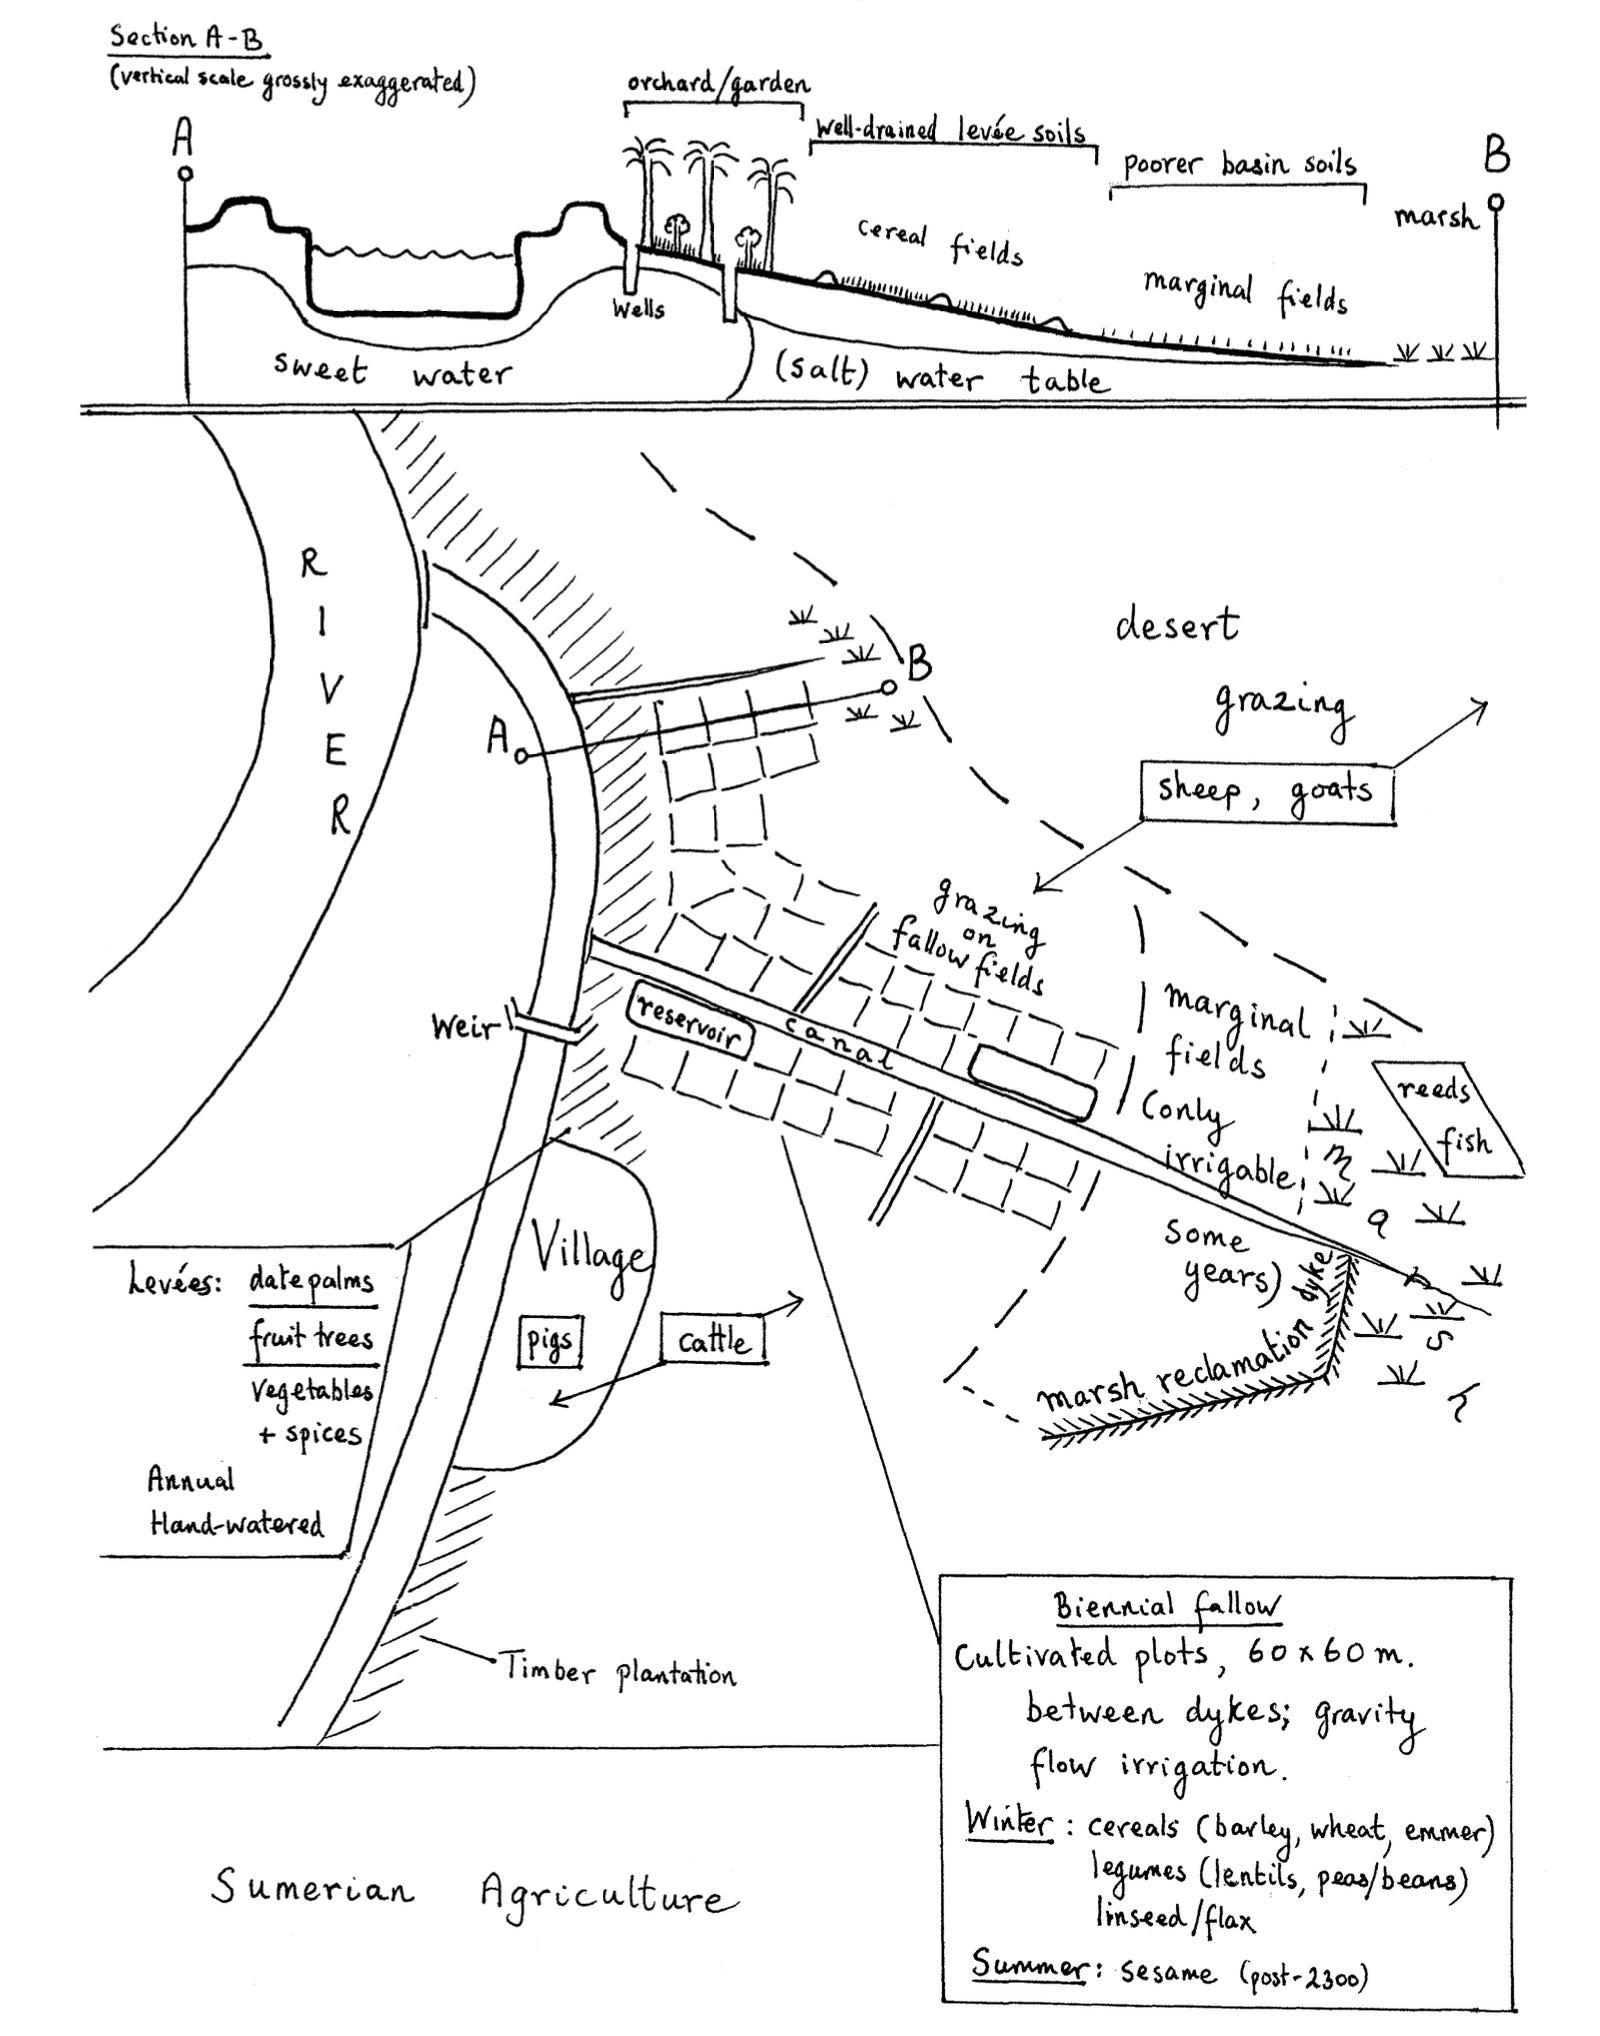 Section A-B
(vertical scale grossly exaggerated)
A
orchard/garden
well-drained levée soils
poorer basin soils
B
marsh
cereal fields
marginal fields
Wells
sweet water
(salt) water table
RIVER
desert
B
A
grazing
sheep, goats
grazing
on
fallow fields
Weir
reservoir
canal
marginal
fields
(only
irrigable
some
years)
reeds
fish
marsh
dyke
marsh reclamation
Village
pigs
cattle
Levées: date palms
fruit trees
vegetables
+ spices
Annual
Hand-watered
Timber plantation
Biennial fallow
Cultivated plots, 60 x 60 m.
between dykes; gravity
flow irrigation.
Winter: cereals (barley, wheat, emmer)
legumes (lentils, peas/beans)
linseed/flax
Summer: sesame (post-2300)
Sumerian Agriculture